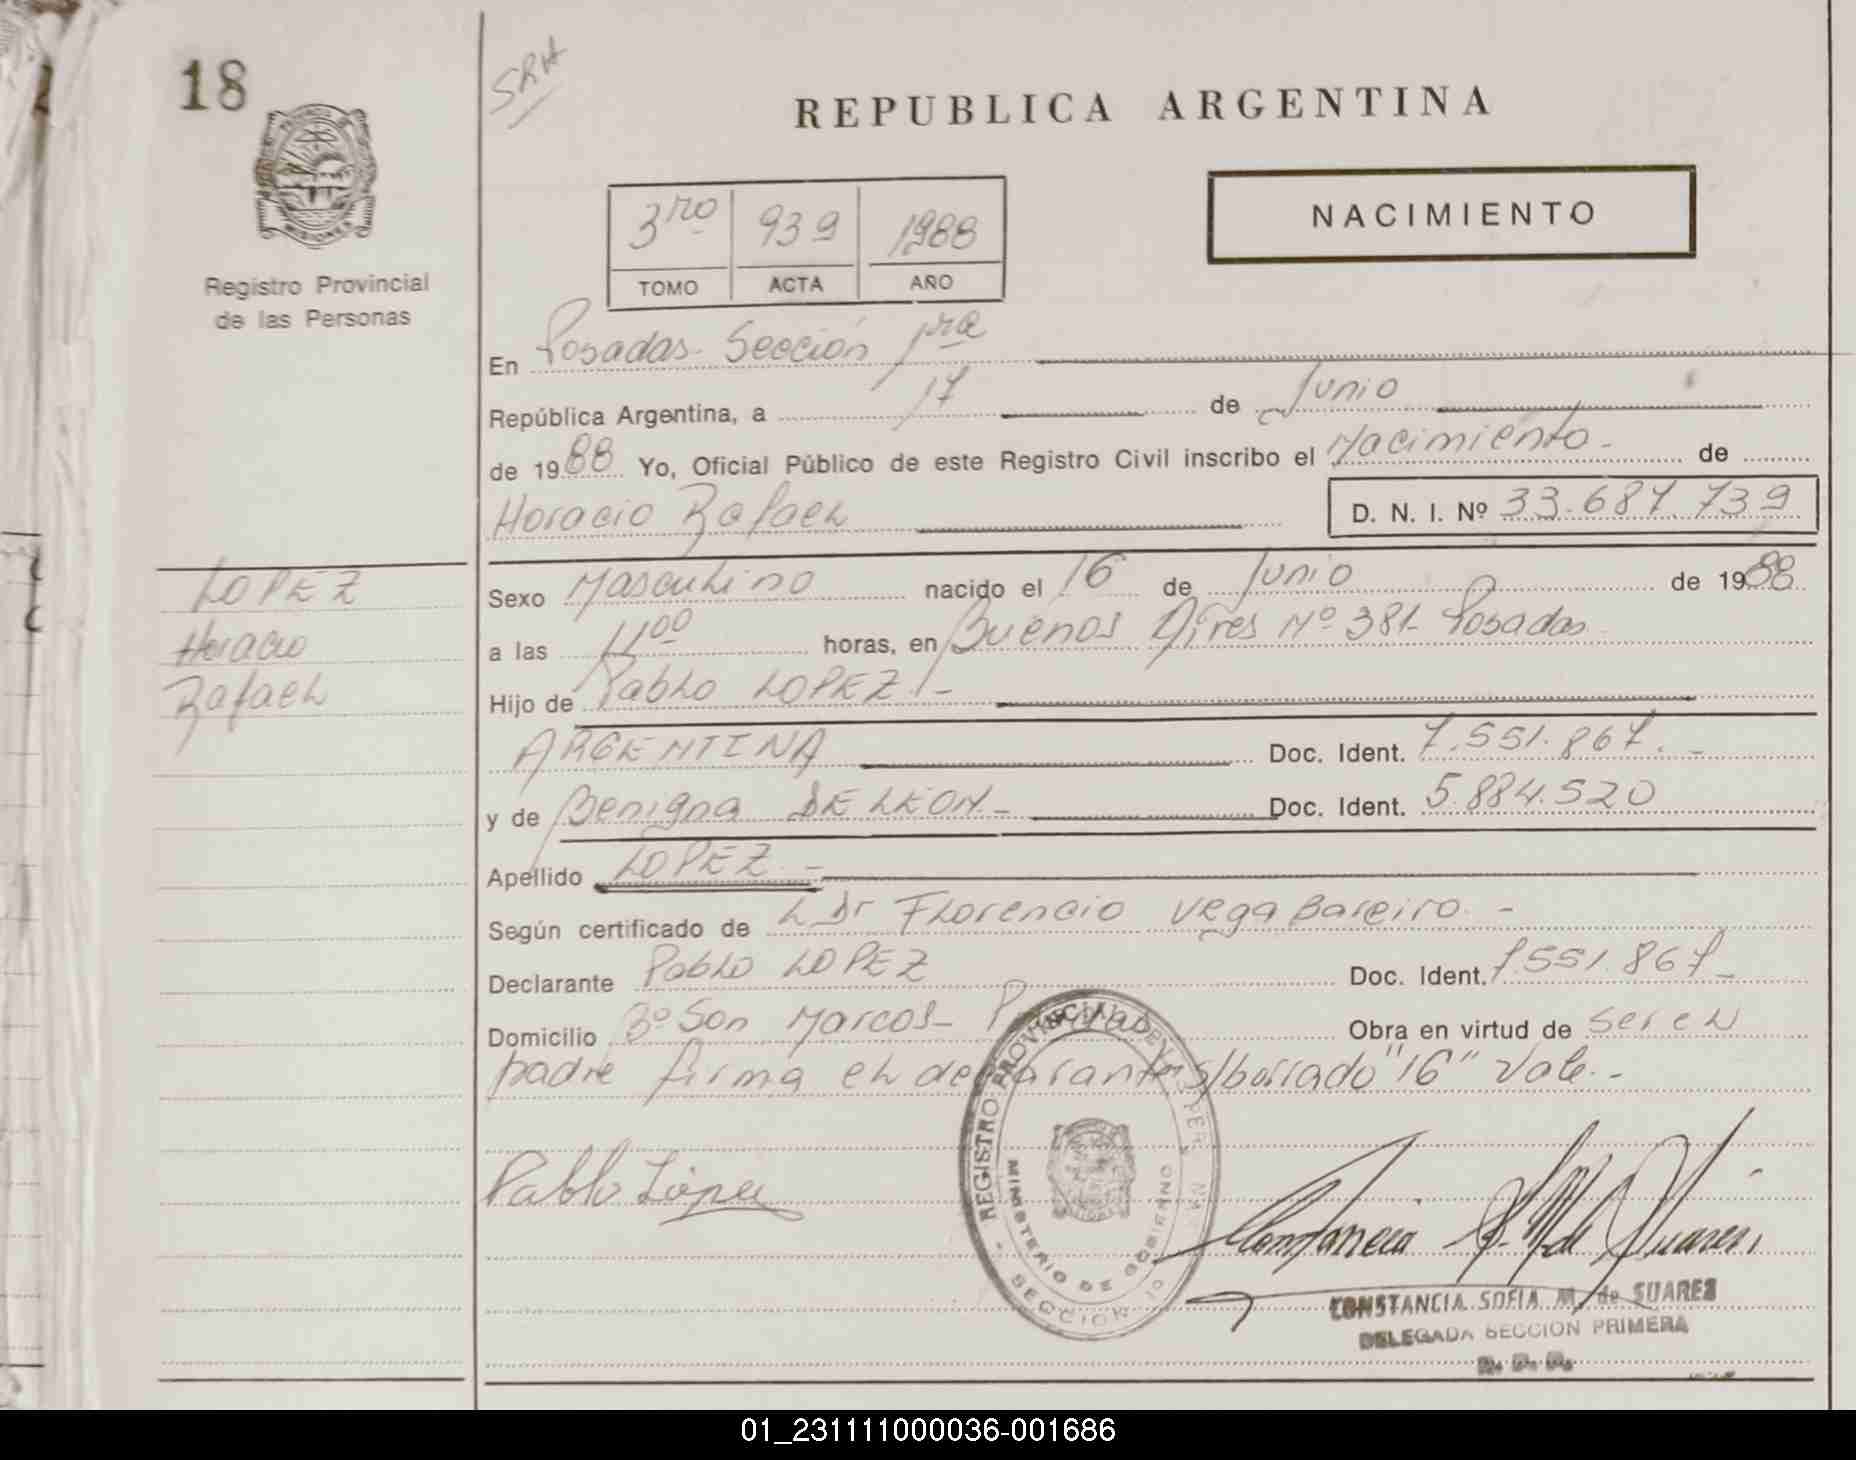 18
SRH
REPUBLICA ARGENTINA
MISIONES
Registro Provincial
de las Personas
3ro 939 1988
TOMO ACTA AÑO
NACIMIENTO
En Posadas Sección 1ra
República Argentina, a 17 de Junio
de 1988 Yo, Oficial Público de este Registro Civil inscribo el Nacimiento de
Horacio Rafael D. N. I. Nº 33.687.739
LOPEZ
Horacio
Rafael
Sexo Masculino nacido el 16 de Junio de 1988
a las 11,00 horas, en Buenos Aires Nº 381- Posadas
Hijo de Pablo LOPEZ.-
ARGENTINA Doc. Ident. 7.551.867.-
y de Benigna DE LEON.- Doc. Ident. 5.884.520
Apellido LOPEZ.-
Según certificado de L Dr Florencio Vega Bareiro.-
Declarante Pablo LOPEZ Doc. Ident. 7.551.867-
Domicilio Bº San Marcos- Posadas Obra en virtud de ser el
padre firma el declarante s/borrado "16" Vale.-
Pablo López
REGISTRO PROVINCIAL DE LAS PER
MINISTERIO DE GOBIERNO
- SECCION 1º
Constancia S. M. de Suarez
CONSTANCIA SOFIA M. de SUAREZ
DELEGADA SECCION PRIMERA
R. P. P.
01_231111000036-001686